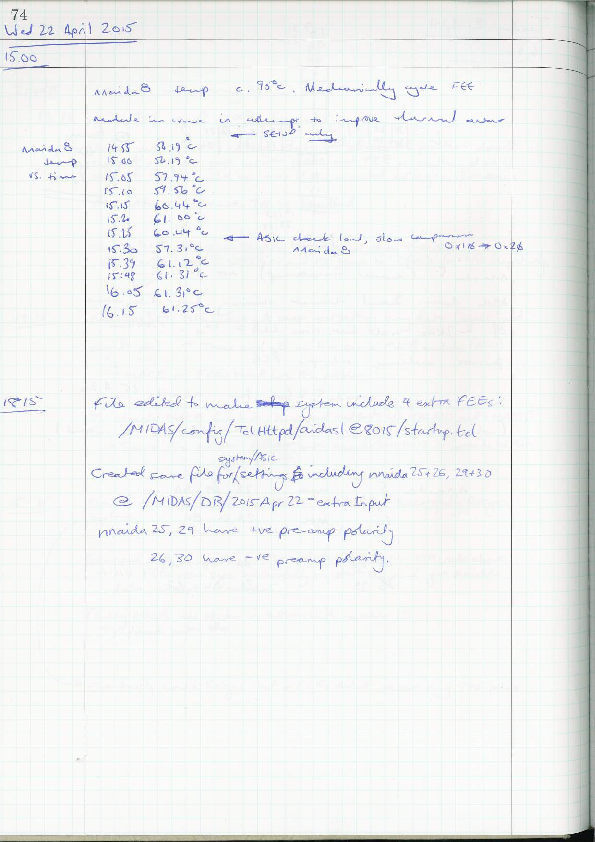 74
Wed 22 April 2015
15.00
nnaida8 temp c. 90°C. Mechanically cycle FEE
module in crate in attempt to improve thermal
← SETUP only
nnaida8 temp vs. time
14.55 56.19°C
15.00 56.19°C
15.05 57.94°C
15.10 59.56°C
15.15 60.44°C
15.20 61.00°C
15.25 60.44°C ← ASIC check load, slow comparator
nnaida8 0x18 → 0x28
15.30 57.31°C
15.39 61.12°C
15:48 61.31°C
16.05 61.31°C
16.15 61.25°C
18:15
File edited to make system include 4 extra FEEs:
/MIDAS/config/TclHttpd/aidas1@8015/startup.tcl
system/Asic
Created save file for/settings including nnaida25+26, 29+30
@ /MIDAS/DB/2015Apr22-extraInput
nnaida 25, 29 have +ve pre-amp polarity
26,30 have -ve preamp polarity.